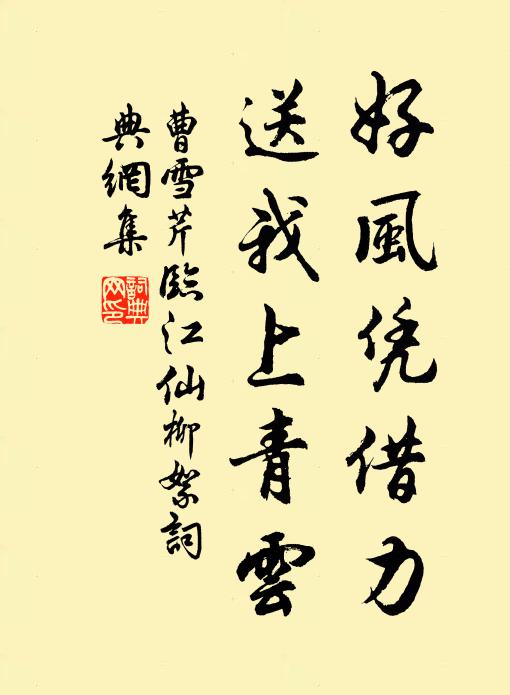 好風凭借力
送我上青雲
曹雪芹臨江仙柳絮詞
典網集
詞典网印